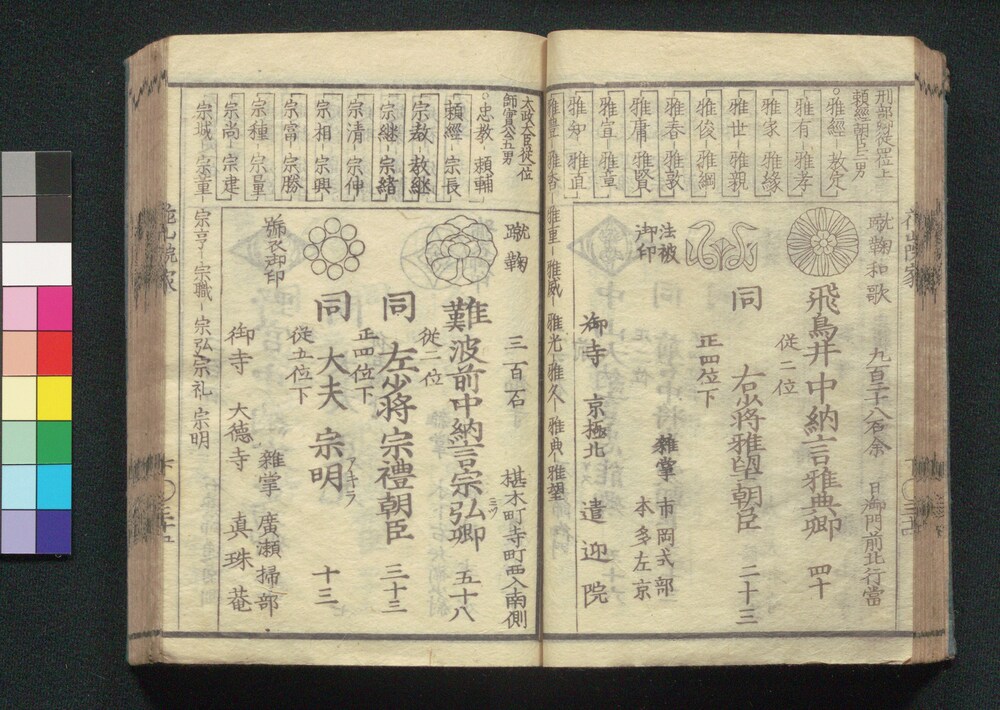 刑部卿従四位上
頼經朝臣二男
雅經-教定
雅有-雅孝
雅家-雅緣
雅世-雅親
雅俊-雅綱
雅春-雅敦
雅庸-雅賢
雅宣-雅章
雅知-雅直
雅豊-雅香-雅重-雅威-雅光-雅久-雅典-雅望
蹴鞠和歌 九百二十八石余 日御門前北行當
飛鳥井中納言雅典卿 四十
従二位
同 右少將雅望朝臣 二十三
正四位下
法被
御印
雜掌 市岡式部
本多左京
御寺 京極北 遣迎院
花山院家
太政大臣従一位
師實公五男
忠教-頼輔
頼經-宗長
宗教-教継
宗継-宗緒
宗清-宗伸
宗相-宗興
宗富-宗勝
宗種-宗量
宗尚-宗建
宗城-宗董-宗亨-宗職-宗弘-宗礼-宗明
蹴鞠 三百石 椹木町寺町西入南側
難波前中納言宗弘卿 五十八
従二位
同 左少將宗禮朝臣 三十三
正四位下
同 大夫 宗明 十三
アキラ
従五位下
號衣御印
雜掌 廣瀬掃部
御寺 大德寺 真珠菴
花山院家